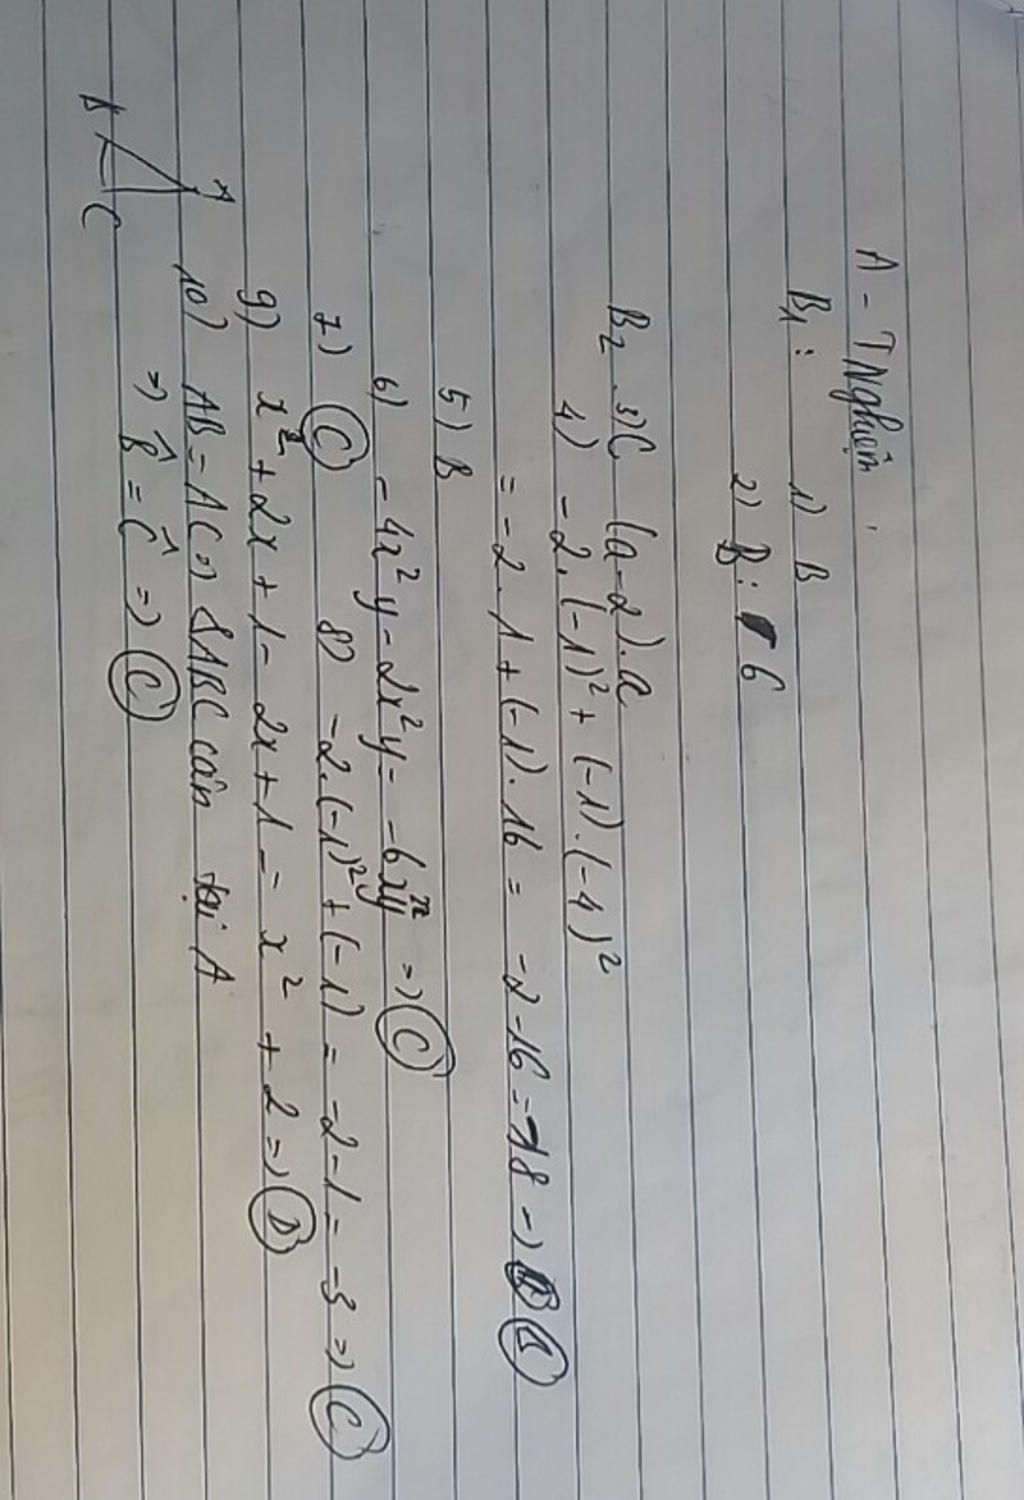 A - TNghiệm
B1: 1) B
2) B: 6
B2. 3) C (a-2).a
4) -2.(-1)² + (-1).(-4)²
= -2.1 + (-1).16 = -2-16 = -18 → B
5) B
6) -4x²y - 2x²y = -6x²y => C
7) C 8) -2.(-1)² + (-1) = -2-1 = -3 => C
9) x² + 2x + 1 - 2x + 1 = x² + 2 => D
10) AB = AC => ΔABC cân tại A
=> B̂ = Ĉ => C
A
B C